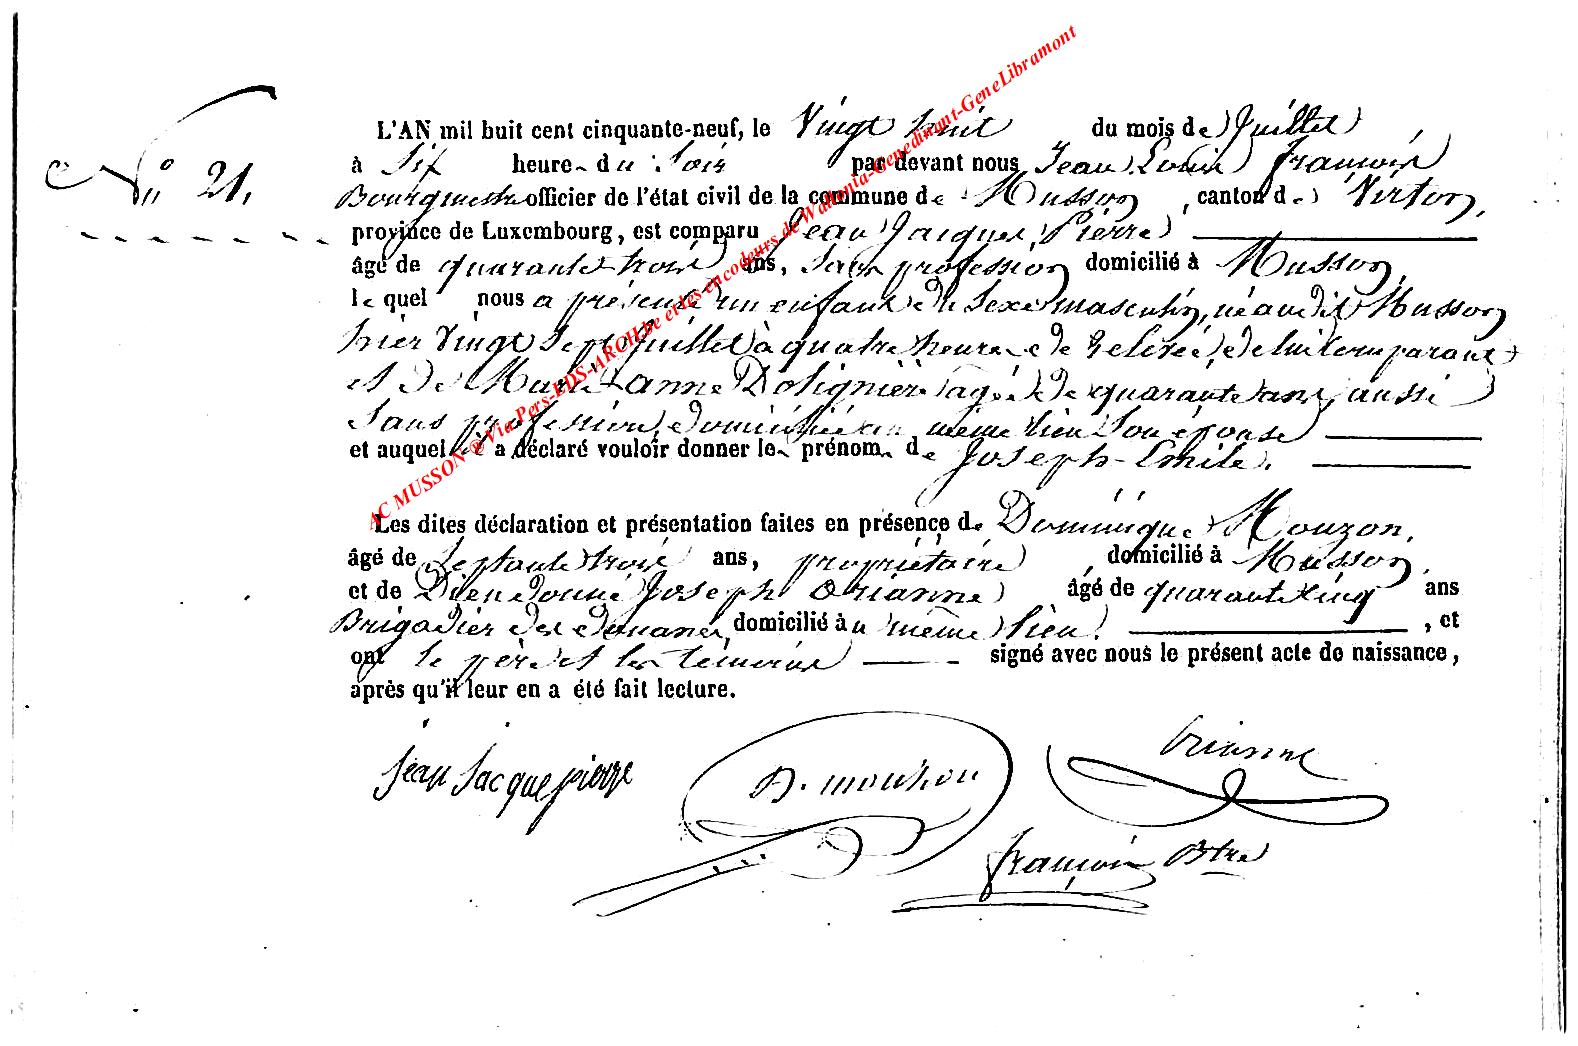 L'AN mil huit cent cinquante-neuf, le Vingt huit du mois de Juillet
N° 21. à Six heure du Soir par devant nous Jean Louis François
Bourgmestre officier de l'état civil de la commune de Musson, canton de Virton,
province de Luxembourg, est comparu Jean Jacques Pierre
âgé de quarante trois ans, Sans profession domicilié à Musson,
lequel nous a présenté un enfant du Sexe masculin, né audit Musson
hier Vingt Sept Juillet à quatre heures de relevée, de lui comparant
et de Marie anne Dolignière agée de quarante ans, aussi
Sans profession, domiciliée au même lieu Son épouse
et auquel il a déclaré vouloir donner le prénom de Joseph-Emile.
Les dites déclaration et présentation faites en présence de Dominique Mouzon,
âgé de Septante trois ans, propriétaire, domicilié à Musson,
et de Dieudonné Joseph Orianne âgé de quarante cinq ans
Brigadier des douanes, domicilié au même lieu, et
ont le père et les témoins signé avec nous le présent acte de naissance,
après qu'il leur en a été fait lecture.
jean jacque pierre D. mouzon Orianne
françois Btre
AC MUSSON @ Via Pers-EDS-ARCH.be et les encodeurs de Wallonia-Genedinant-GeneLibramont